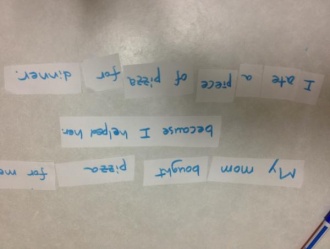 My mom bought pizza for me
because I helped her
I ate a piece of pizza for dinner.